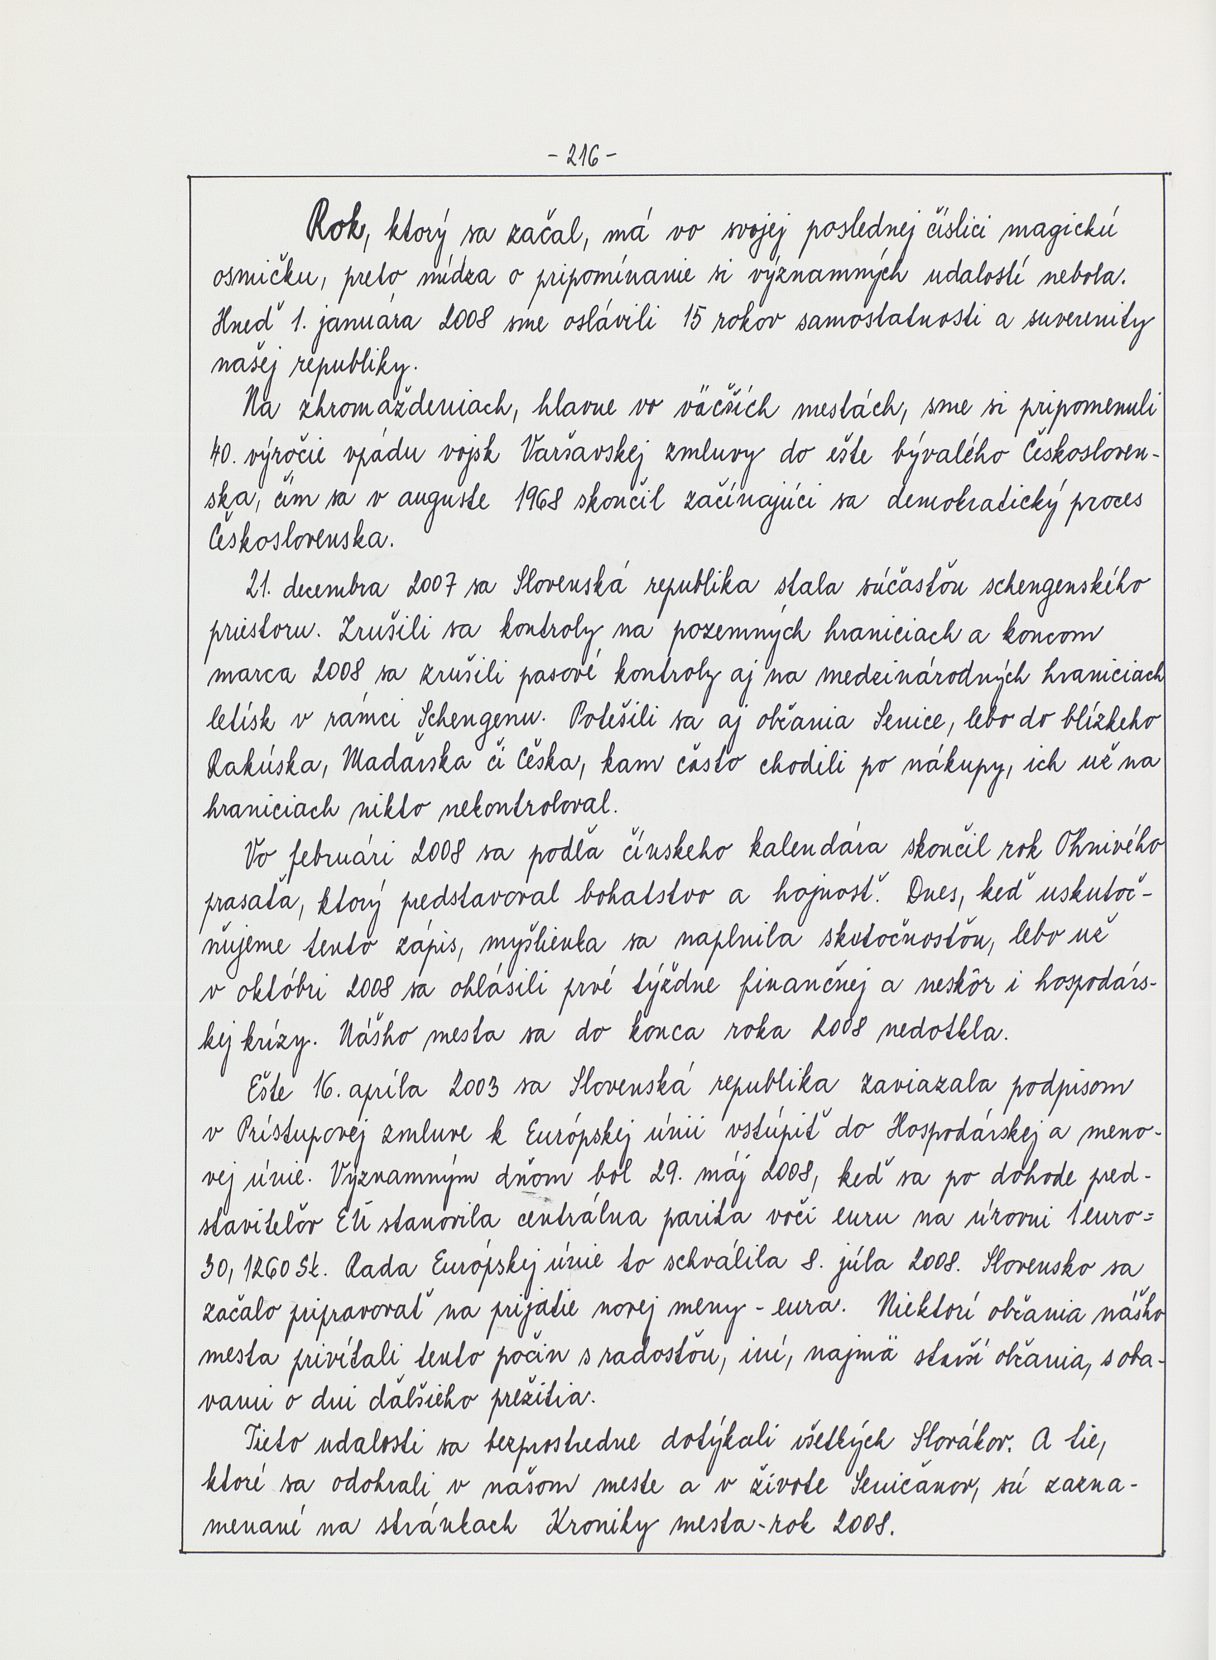 - 216 -
Rok, ktorý sa začal, má vo svojej poslednej číslici magickú
osmičku, preto núdza o pripomínanie si významných udalostí nebola.
Hneď 1. januára 2008 sme oslávili 15 rokov samostatnosti a suverenity
našej republiky.
Na zhromaždeniach, hlavne vo väčších mestách, sme si pripomenuli
40. výročie vpádu vojsk Varšavskej zmluvy do ešte bývalého Českosloven-
ska, čím sa v auguste 1968 skončil začínajúci sa demokratický proces
Československa.
21. decembra 2007 sa Slovenská republika stala súčasťou schengenského
priestoru. Zrušili sa kontroly na pozemných hraniciach a koncom
marca 2008 sa zrušili pasové kontroly aj na medzinárodných hraniciach
letísk v rámci Schengenu. Potešili sa aj občania Senice, lebo do blízkeho
Rakúska, Maďarska či Česka, kam často chodili po nákupy, ich už na
hraniciach nikto nekontroloval.
Vo februári 2008 sa podľa čínskeho kalendára skončil rok Ohnivého
prasaťa, ktorý predstavoval bohatstvo a hojnosť. Dnes, keď uskutoč-
ňujeme tento zápis, myšlienka sa naplnila skutočnosťou, lebo už
v októbri 2008 sa ohlásili prvé týždne finančnej a neskôr i hospodárs-
kej krízy. Nášho mesta sa do konca roka 2008 nedotkla.
Ešte 16. apríla 2003 sa Slovenská republika zaviazala podpisom
v Prístupovej zmluve k Európskej únii vstúpiť do Hospodárskej a meno-
vej únie. Významným dňom bol 29. máj 2008, keď sa po dohode pred-
staviteľov EÚ stanovila centrálna parita voči euru na úrovni 1 euro=
30,1260 Sk. Rada Európskej únie to schválila 8. júla 2008. Slovensko sa
začalo pripravovať na prijatie novej meny - eura. Niektorí občania nášho
mesta privítali tento počin s radosťou, iní, najmä starší občania, s oba-
vami o dni ďalšieho prežitia.
Tieto udalosti sa bezprostredne dotýkali všetkých Slovákov. A tie,
ktoré sa odohrali v našom meste a v živote Seničanov, sú zazna-
menané na stránkach Kroniky mesta-rok 2008.